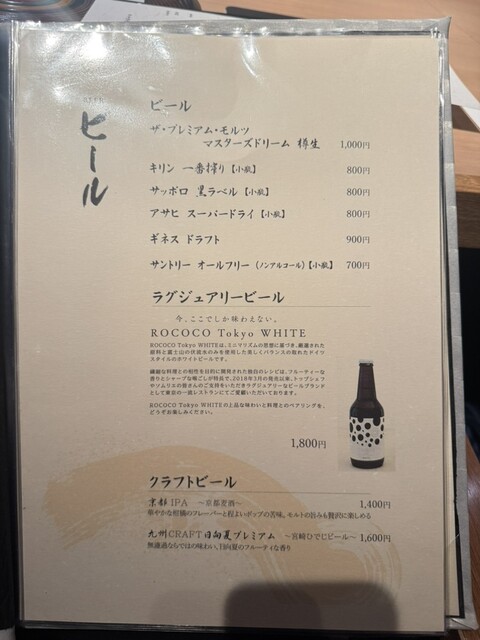 BEER
ビール
ビール
ザ・プレミアム・モルツ
マスターズドリーム 樽生 1,000円
キリン 一番搾り【小瓶】 800円
サッポロ 黒ラベル【小瓶】 800円
アサヒ スーパードライ【小瓶】 800円
ギネス ドラフト 900円
サントリー オールフリー（ノンアルコール）【小瓶】 700円
ラグジュアリービール
今、ここでしか味わえない。
ROCOCO Tokyo WHITE
ROCOCO Tokyo WHITEは、ミニマリズムの思想に基づき、厳選された
原料と富士山の伏流水のみを使用した美しくバランスの取れたドイツ
スタイルのホワイトビールです。
繊細な料理との相性を目的に開発された独自のレシピは、フルーティーな
香りとシャープな喉ごしが特長で、2018年3月の発売以来、トップシェフ
やソムリエの皆さんのご支持をいただきラグジュアリーなビールブランド
として東京の一流レストランにてご愛顧いただいております。
ROCOCO Tokyo WHITEの上品な味わいと料理とのペアリングを、
どうぞお楽しみください。
1,800円
クラフトビール
京都IPA ～京都麦酒～ 1,400円
華やかな柑橘のフレーバーと程よいホップの苦味。モルトの旨みも贅沢に楽しめる
九州CRAFT日向夏プレミアム ～宮崎ひでじビール～ 1,600円
無濾過ならではの味わい、日向夏のフルーティな香り